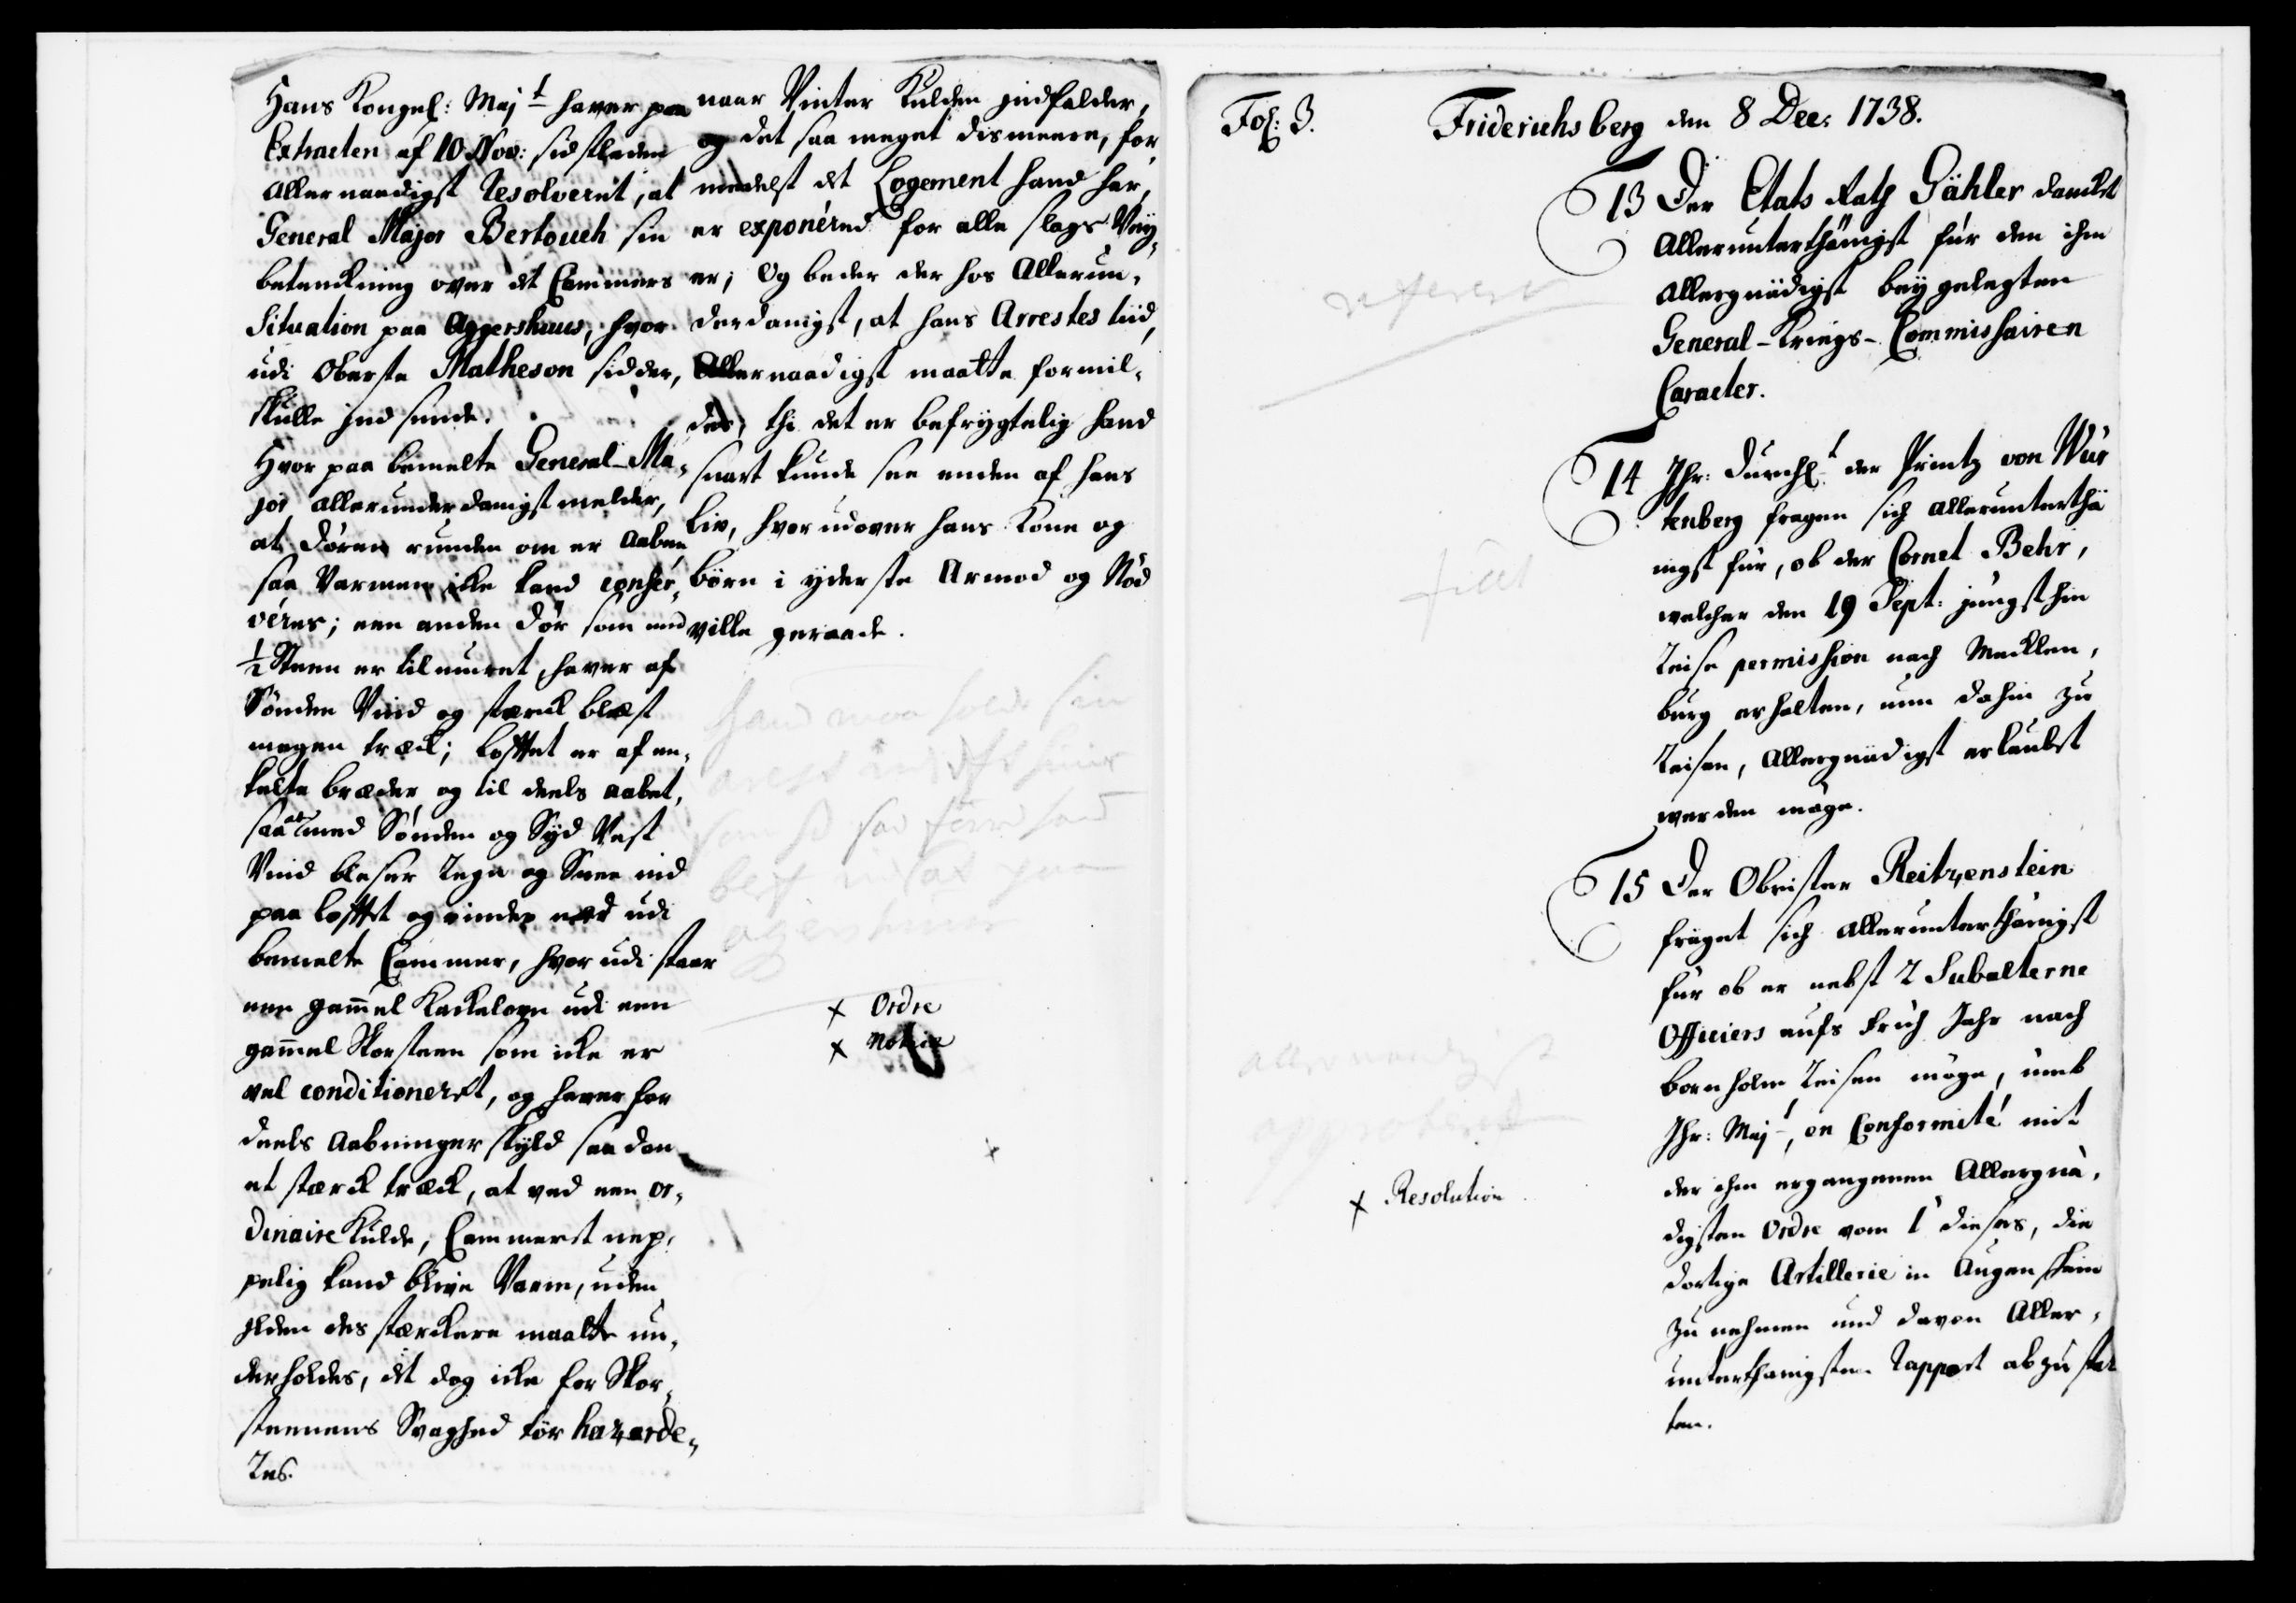 Hans Kongel: Maj<sup>t</sup> haver paa
Extracten af 10 Nov: sidstleden
allernaadigst Resolveret, at
General Major Bertouch sin
betenckning over dt Cammers
Situation paa Aggershuus, hvor
udi Oberste Matheson sidder,
skulle jndsende.
Hvor paa bemelte General-Ma-
jor allerunderdanigst melder,
at Døren runden om er aaben
saa Varmen icke kand conser-
véres; een anden Dør som med
½ Steen er tilmuret, haver af
Sønden Vind og sterck blæst
megen træck; Lofftet er af en-
kelte bræder og til deels aabet,
saa at med Sønden og Syd Vest
Vind blæser Regn og Snee ind
paa lofftet og rinder ned udi
bemelte Cammer, hvor udi staar
een gam̄el Kackelovn udi een
gam̄el Skorsteen som icke er
vel conditioneret, og haver for
deels Aabninger skyld saadan
et stærck træck, at ved een or-
dinaire Kulde, Cammeret nep-
pelig kand blive Varm, uden
jlden des stærckere maatte un-
derholdes, dt dog icke for Skor-
steenens Svaghed tør hazarde-
res.
naar Vinter Kulden jndfalder,
og det saa meget dismeere, for
medelst dt Logement hand har,
er exponéred for alle slags Vey-
er; Og beder der hos Allerun-
derdanigst, at hans Arrestes tiid
Allernaadigst maatte formil-
des, thi det er befrygtelig hand
snart kunde see enden af hans
Liv, hvorudover hans Kone og
børn i yderste Armod og Nød
ville geraade.
hand maa holde sin
arest
som
best
agershuus
x Ordre
x Notice
Fol: 3.
Friderichsberg den 8 Dec: 1738.
13 Der Etats Rath Gähler dancket
Allerunterthänigst für den ihm
Allergnädigst beygelegten
General-Kriegs-Commissairen
Caracter.
refereret
14 Ihr: Durchl<sup>t</sup> der Printz von Wür
tenberg fragen sich allerunterthä
nigst für, ob der Cornet Behr,
welcher den 19 Sept: jüngsthin
Reise permission nach Mecklen-
burg erhalten, nun dahin zu
Reisen, Allergnädigst erlaubet
werden möge.
15 Der Obrister Reitzenstein
fräget sich allerunterthänigst
für ob er nebst 2 Subalterne
Officiers aufs Früh Jahr nach
bornholm Reisen möge, umb
Ihr: Maj<sup>t</sup>, en Conformité mit
der ihm ergangenen Allergnä-
digsten Ordre vom 1 dieses, die
dortige Artillerie in Augenschein
zu nehmen und davon Aller-
unterthänigsten Rapport abzustat
ten.
allernaadigst
approberet
x Resolution